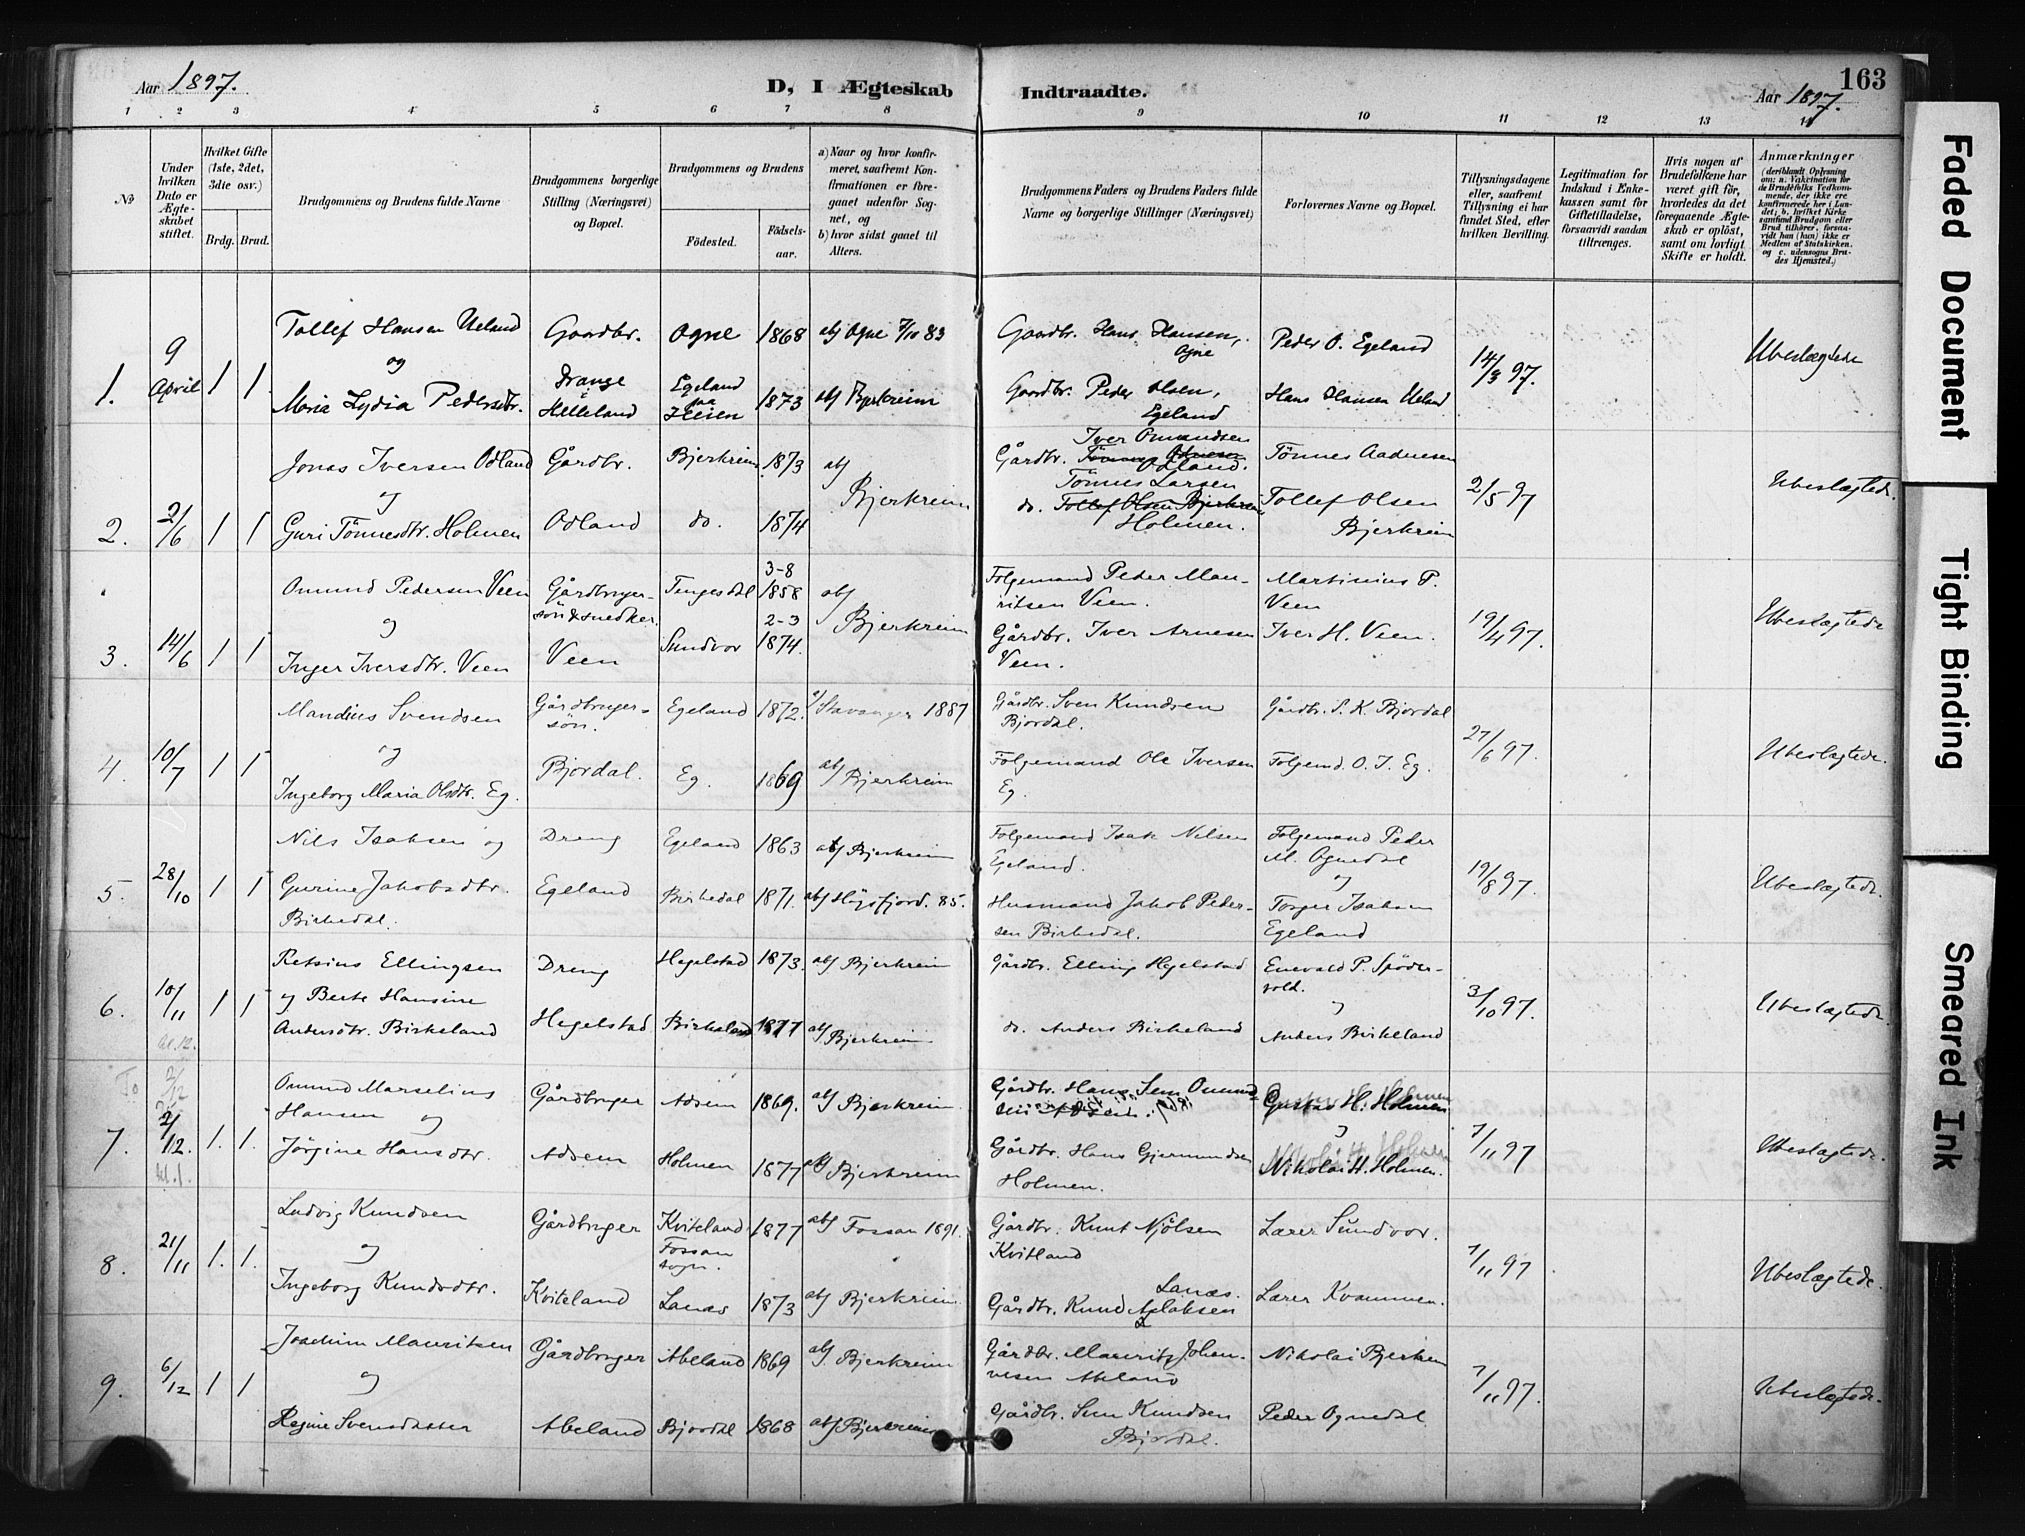 Aar 1897.
D, I Ægteskab Indtraadte.
Aar 1897.
163
1 2 3 4 5 6 7 8 9 10 11 12 13 14
№
Under hvilken Dato er Ægteskabet stiftet.
Hvilket Gifte (1ste, 2det, 3die osv.)
Brdg. Brud.
Brudgommens og Brudens fulde Navne
Brudgommens borgerlige Stilling (Næringsvei) og Bopæl.
Brudgommens og Brudens
Fødested.
Fødselsaar.
a) Naar og hvor konfirmeret, saafremt Konfirmationen er foregaaet udenfor Sognet, og
b) hvor sidst gaaet til Alters.
Brudgommens Faders og Brudens Faders fulde Navne og borgerlige Stillinger (Næringsvei)
Forlovernes Navne og Bopæl.
Tillysningsdagene eller, saafremt Tillysning ei har fundet Sted, efter hvilken Bevilling.
Legitimation for Indskud i Enkekassen samt for Giftetilladelse, forsaavidt saadan tiltrænges.
Hvis nogen af Brudefolkene har været gift før, hvorledes da det foregaaende Ægteskab er opløst, samt om lovligt Skifte er holdt.
Anmærkninger
(deriblandt Oplysning om: a. Vakcination for de Brudefolks Vedkommende, der ikke ere konfirmerede her i Landet; b. hvilket Kirkesamfund Brudgom eller Brud tilhører, forsaavidt han (hun) ikke er Medlem af Statskirken. og c. udensogns Brudes Hjemsted.)
1. 9 April 1 1.
Tollef Hansen Ueland og
Maria Lydia Pedersdtr.
Gaardbr. Drange Helleland
Ogne 1868 a/b Ogne 7/10 83
Egeland paa Heien 1873 a/b Bjerkreim
Gaardbr. Hans Hansen, Ogne
Gaardbr. Peder Olsen, Egeland
Peder O. Egeland
Hans Hansen Ueland
14/3 97. Ubeslægtede
2. 2/6 1 1
Jonas Iversen Odland og
Guri Tönnesdtr. Holmen
Gårdbr. Odland
Bjerkreim 1873 a/b Bjerkreim
do. 1874
Iver Omundsen
Gårdbr. Odland.
Tönnes Larsen
do. Tollef Olsen Bjerkreim
Holmen.
Tönnes Aadnesen
Tollef Olsen Bjerkreim
2/5 97 Ubeslægtede.
3. 14/6 1 1
Omund Pedersen Veen og
Inger Iversdtr. Veen
Gårdbrugersön & snedker. Veen
Tengesdal 3-8 1858 a/b Bjerkreim
Sundvor 2-3 1874.
Folgemand Peder Mauritsen Veen.
Gårdbr. Iver Arnesen Veen.
Martinius P. Veen
Iver H. Veen.
19/4 97. Ubeslægtede
4. 10/7 1 1
Mandius Svendsen og
Ingeborg Maria Olsdtr. Eg.
Gårdbrugersön. Bjordal.
Egeland 1872. a/ Stavanger 1887
Eg. 1869 a/b Bjerkreim
Gårdbr. Sven Knudsen Bjordal.
Folgemand Ole Iversen Eg.
Gårdbr. S. K. Bjordal
Folgemd. O. I. Eg.
27/6 97. Ubeslægtede.
5. 28/10 1 1
Nils Isaksen og
Gurine Jakobsdtr. Birkedal.
Dreng Egeland
Egeland 1863 a/b Bjerkreim
Birkedal 1871. a/b Högsfjord. 85.
Folgemand Isak Nilsen Egeland.
Husmand Jakob Pedersen Birkedal.
Folgemand Peder M. Ognedal og
Torger Isaksen Egeland
19/8 97. Ubeslægtede.
6. 10/11 kl. 12. 1 1
Retsius Ellingsen
og Berte Hansine
Andersdtr. Birkeland
Dreng Hegelstad
Hegelstad 1873. a/b Bjerkreim
Birkeland 1877 a/b Bjerkreim
Gårdbr. Elling Hegelstad
do. Anders Birkeland
Enevald P. Spödervold. og
Anders Birkeland
3/10 97. Ubeslægtede.
7. 2/12. kl. 1 1. 1.
Omund Marselius Hansen og
Jörgine Hansdtr.
Gårdbruger Adsem
Adsem 1869. a/b Bjerkreim
Holmen 1877 a/b Bjerkreim
Gårdbr. Hans Sem
Gårdbr. Hans Gjermundsen Holmen.
Gustav H. Holmen og
Nikolai H. Holmen.
7/11 97 Ubeslægtede.
8. 21/11 1. 1.
Ludvig Knudsen og
Ingeborg Knudsdtr.
Gårdbruger Kviteland
Kviteland Fossan sogn. 1877 a/b Fossan 1891.
Lanes 1873 a/b Bjerkreim.
Gårdbr. Knut Njölsen Kvitland
Gårdbr. Knud Aslaksen Lanes.
Lærer Sundvor.
Lærer Kvammen.
7/11 97 Ubeslægtede.
9. 6/12 1 1
Joachim Mauritsen og
Regine Svensdatter
Gårdbruger Abeland
Abeland 1869 a/b Bjerkreim
Bjordal 1868 a/b Bjerkreim
Gårdbr. Mauritz Johannesen Abeland
Gårdbr. Sven Knudsen Bjordal.
Nikolai Bjerkreim
Peder Ognedal
7/11 97. Ubeslægtede.
Faded Document
Tight Binding
Smeared Ink